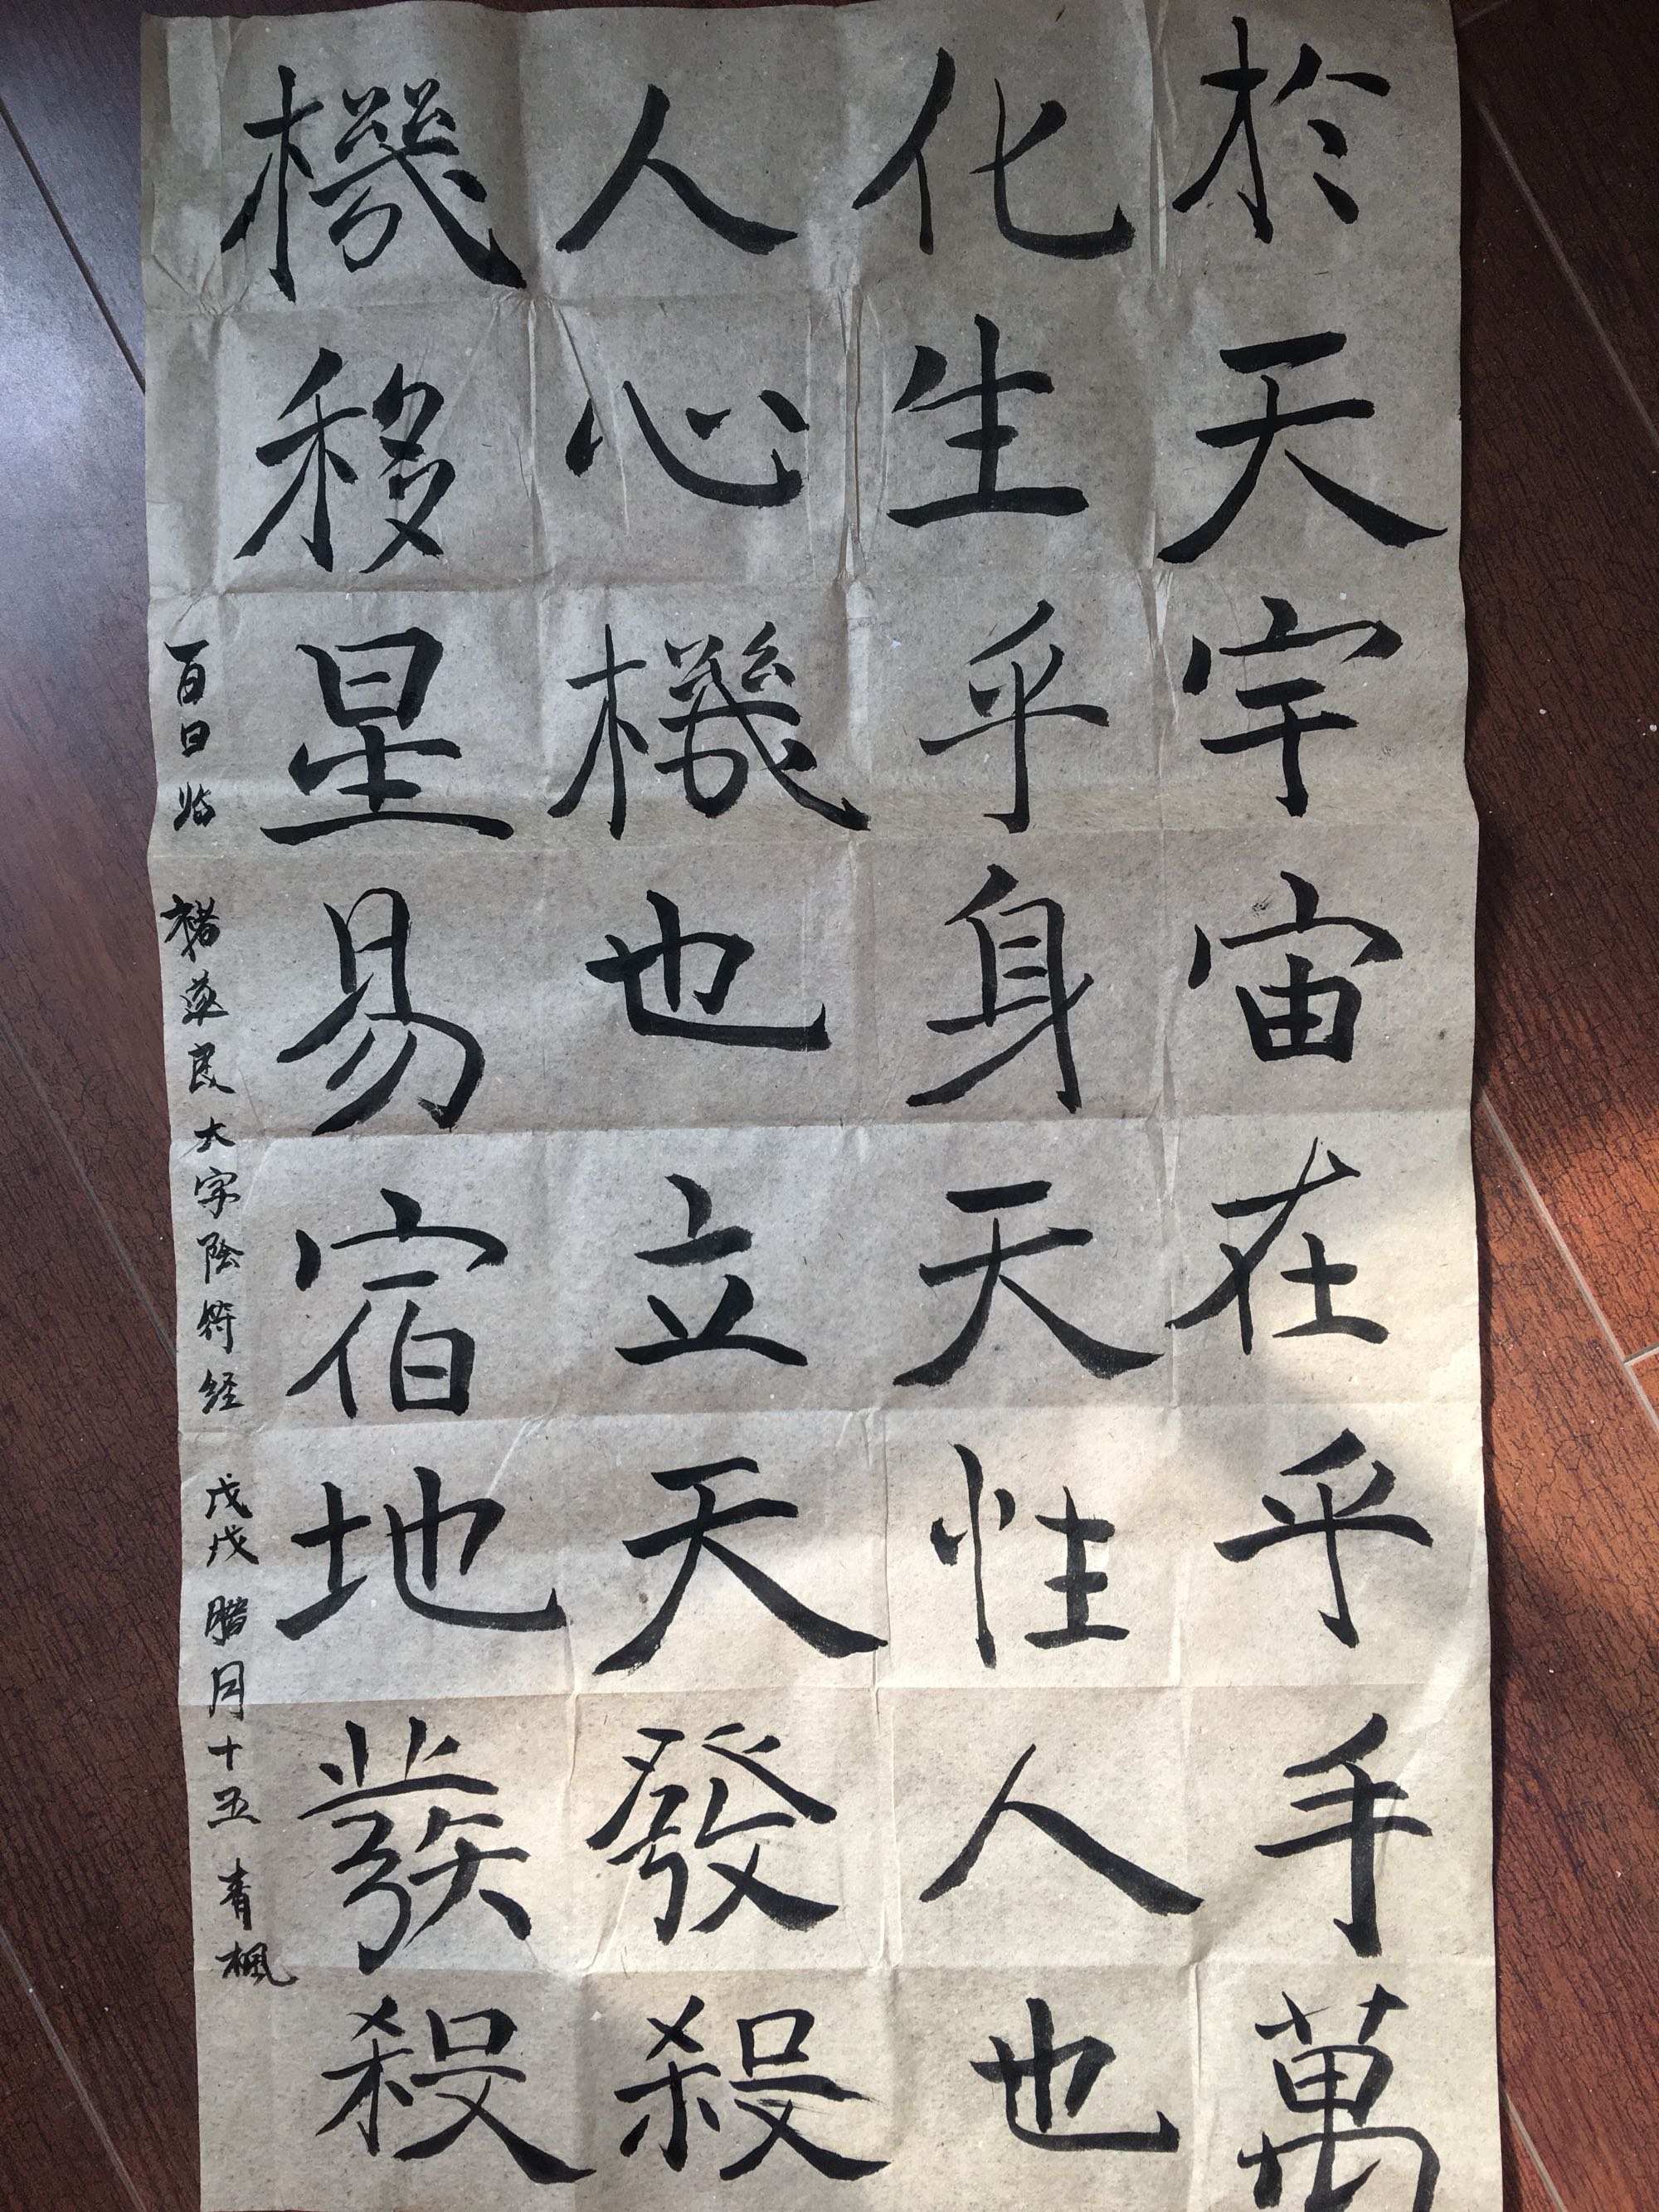 於天宇宙在乎手萬
化生乎身天性人也
人心機也立天發殺
機移星易宿地發殺
百日临 褚遂良大字阴符经 戊戌腊月十五 青枫